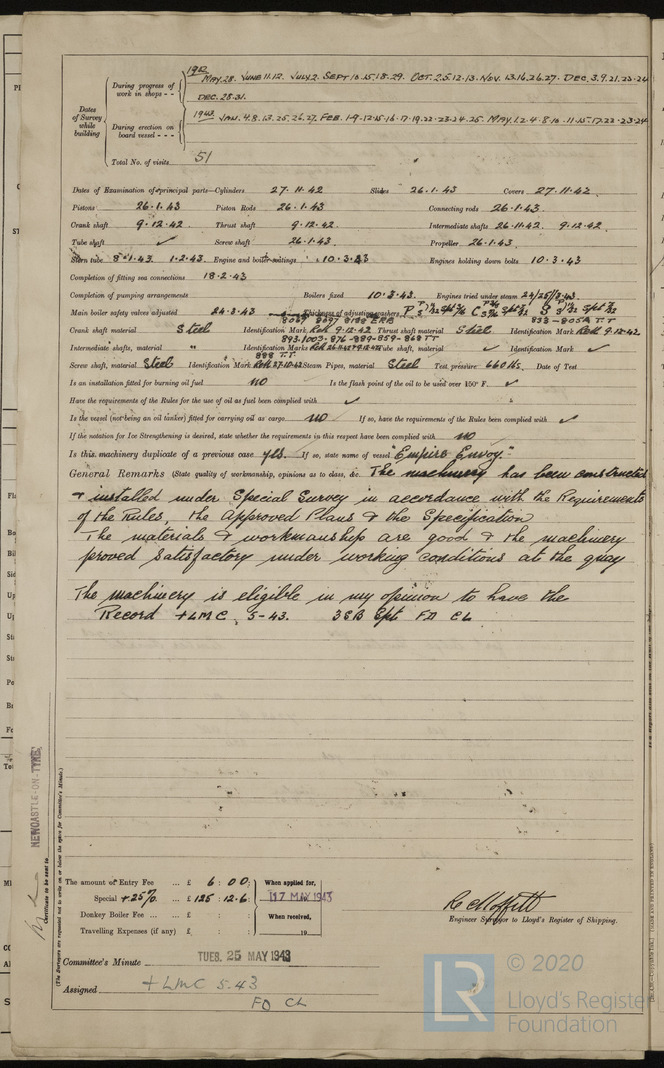 1942
During progress of work in shops - - MAY. 28. JUNE 11. 12. JULY 2. SEPT 10. 15. 18. 29. OCT. 2. 5. 12. 13. NOV. 13. 16. 26. 27. DEC. 3. 9. 21. 23. 24
DEC. 28. 31.
Dates of Survey while building
1943. JAN. 4. 8. 13. 25. 26. 27. FEB. 1. 9. 12. 15. 16. 17. 19. 22. 23. 24. 25. MAY. 1. 2. 4. 8. 10. 11. 15. 17. 22. 23. 24
During erection on board vessel - - -
Total No. of visits 51
Dates of Examination of principal parts—Cylinders 27.11.42 Slides 26.1.43 Covers 27.11.42
Pistons 26.1.43 Piston Rods 26.1.43 Connecting rods 26.1.43
Crank shaft 9.12.42 Thrust shaft 9.12.42 Intermediate shafts 26.11.42 9.12.42
Tube shaft ✓ Screw shaft 26.1.43 Propeller 26.1.43
Stern tube 8.1.43 1.2.43 Engine and boiler seatings 10.3.43 Engines holding down bolts 10.3.43
Completion of fitting sea connections 18.2.43
Completion of pumping arrangements Boilers fixed 10.3.43 Engines tried under steam
Main boiler safety valves adjusted 24.3.43 Thickness of adjusting washers
8097 8198
Crank shaft material Steel Identification Mark 9.12.42 Thrust shaft material Steel Identification Mark 9.12.42
Intermediate shafts, material " Identification Marks Tube shaft, material ✓ Identification Mark ✓
888 TT
Screw shaft, material Steel Identification Mark 27.10.42 Steam Pipes, material Steel Test pressure 660 lbs. Date of Test
Is an installation fitted for burning oil fuel no Is the flash point of the oil to be used over 150° F. ✓
Have the requirements of the Rules for the use of oil as fuel been complied with ✓
Is the vessel (not being an oil tanker) fitted for carrying oil as cargo no If so, have the requirements of the Rules been complied with ✓
If the notation for Ice Strengthening is desired, state whether the requirements in this respect have been complied with no
Is this machinery duplicate of a previous case yes. If so, state name of vessel "Empire Envoy."
General Remarks (State quality of workmanship, opinions as to class, &c. The machinery has been constructed
& installed under Special Survey in accordance with the Requirements
of the Rules, the Approved Plans & the Specification
The materials & workmanship are good & the machinery
proved satisfactory under working conditions at the quay
The machinery is eligible in my opinion to have the
Record +LMC 5-43. 3SB Spt FD CL
NEWCASTLE-ON-TYNE.
Certificate to be sent to
(The Surveyors are requested not to write on or below the space for Committee's Minute.)
The amount of Entry Fee ... £ 6 : 0 0 : When applied for,
Special +25% ... £ 125 : 12.6 : 17 MAY 1943
Donkey Boiler Fee ... ... £ : : When received,
Travelling Expenses (if any) £ : : 19
R. Moffitt
Engineer Surveyor to Lloyd's Register of Shipping.
Committee's Minute TUES. 25 MAY 1943
Assigned +LMC 5.43
FD CL
© 2020
LR
Lloyd's Register
Foundation